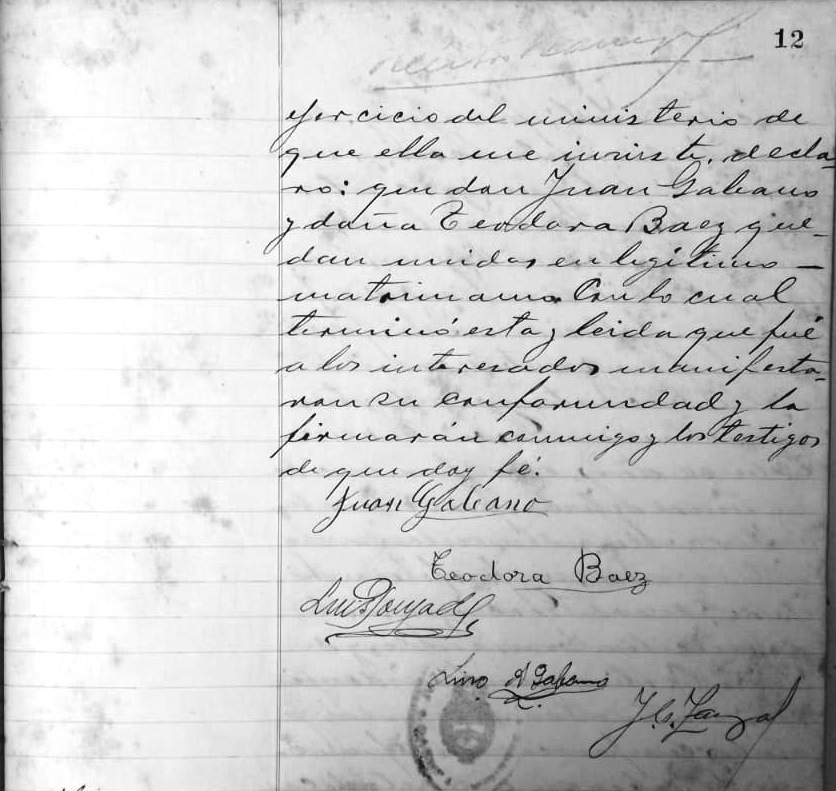 12
ejercicio del ministerio de
que ella me inviste, decla-
ro: que don Juan Galeano
y doña Teodora Baez que-
dan unidos en legítimo —
matrimonio. Con lo cual
terminó esta y leida que fué
a los interesados manifesta-
ron su conformidad y la
firmarán conmigo y los testigos
de que doy fé.
Juan Galeano
Teodora Baez
Luis
Lino A Galeano
J. C.